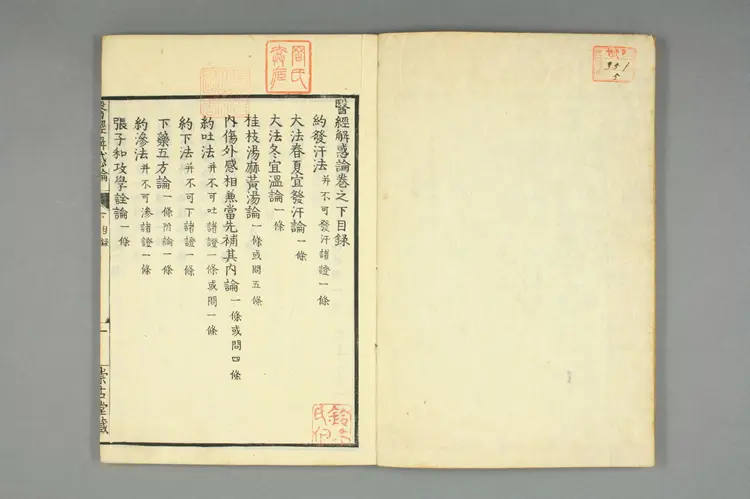 醫經解惑論卷之下目錄
約發汗法 并不可發汗諸證一條
大法春夏宜發汗論 一條
大法冬宜溫論 一條
桂枝湯麻黃湯論 一條或問五條
內傷外感相兼當先補其內論 一條或問四條
約吐法 并不可吐諸證一條或問一條
約下法 并不可下諸證一條
下藥五方論 一條附論一條
約滲法 并不可滲諸證一條
張子和攻擊詮論 一條
醫經解惑論
下目錄
一
崇古堂藏